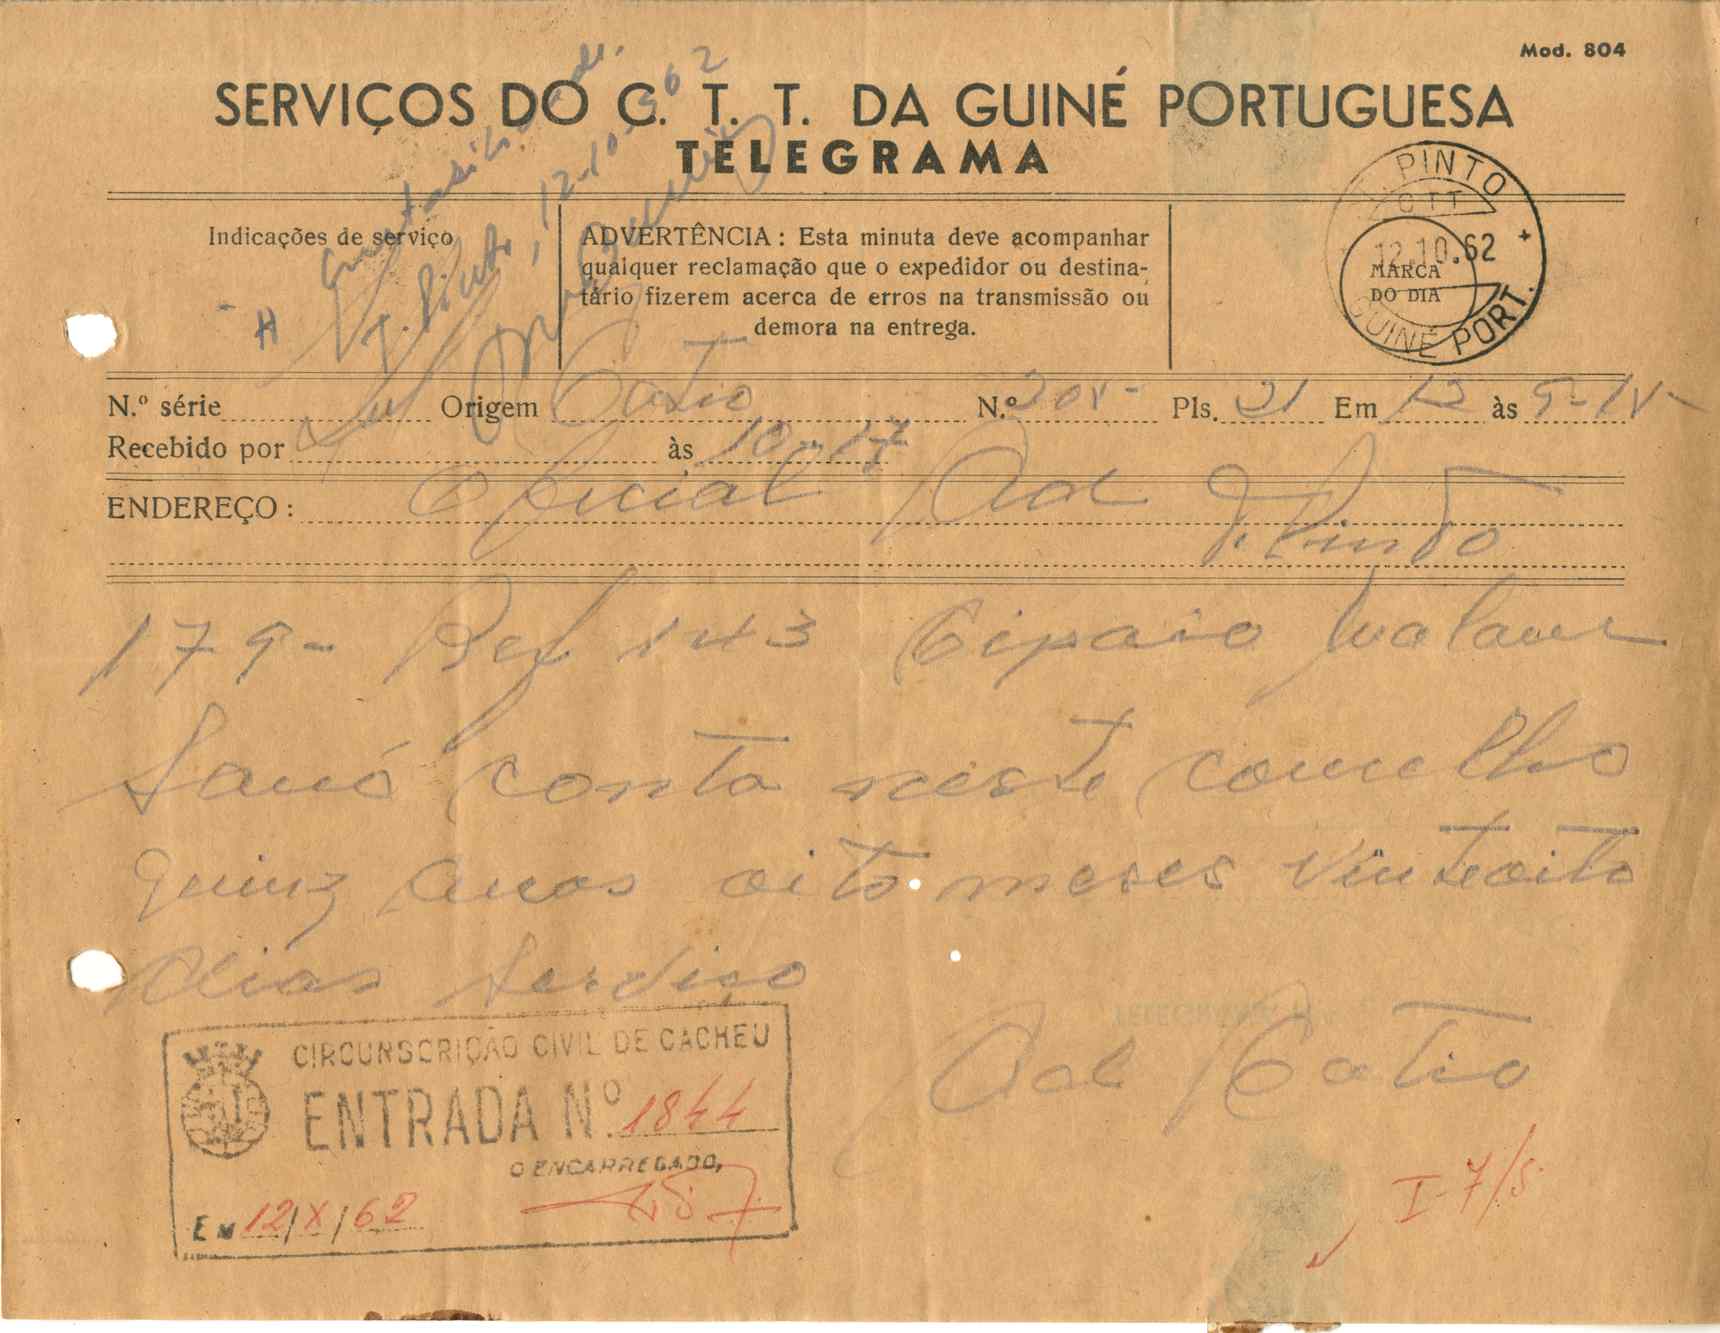 Mod. 804
SERVIÇOS DO C. T. T. DA GUINÉ PORTUGUESA
TELEGRAMA
Indicações de serviço
ADVERTÊNCIA: Esta minuta deve acompanhar
qualquer reclamação que o expedidor ou destina-
tário fizerem acerca de erros na transmissão ou
demora na entrega.
T. PINTO
CTT
12.10.62
MARCA
DO DIA
GUINÉ PORT.
T. Pinto, 12-10-962
N.º série Origem Catió N.º Pls. 21 Em 12 às
Recebido por às 10-17
ENDEREÇO: Oficial Ad T. Pinto
179- Ref 143 Cipaio Malam
Sanó conta neste concelho
quinz anos oito meses vinteoito
dias serviço
Ad Catió
CIRCUNSCRIÇÃO CIVIL DE CACHEU
ENTRADA N.º 1844
O ENCARREGADO,
EM 12/X/62
I-7/5